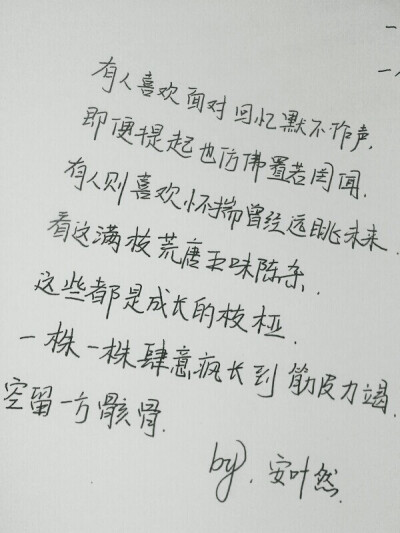 有人喜欢面对回忆默不作声,
即便提起也仿佛置若罔闻.
有人则喜欢怀揣曾经远眺未来.
看这满枝荒唐五味陈杂.
这些都是成长的枝桠.
一株一株肆意疯长到筋皮力竭.
空留一方骸骨.
by. 安叶然.